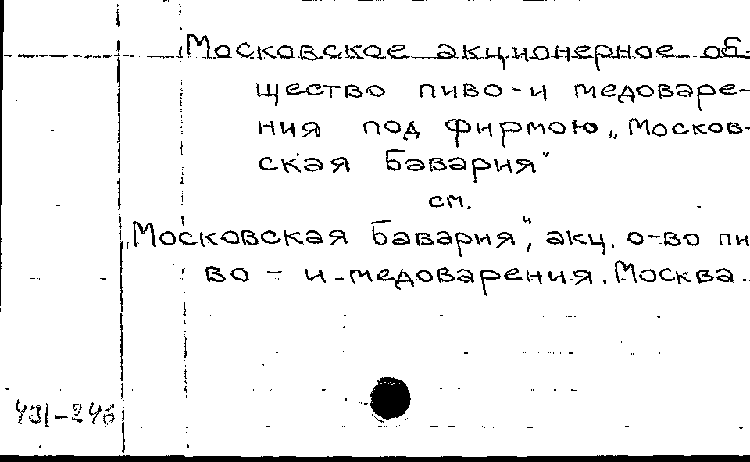 Московское акционерное об-
щество пиво-и медоваре-
ния под фирмою „Москов-
ская Бавария"
см.
„Московская Бавария", акц. о-во пи
во - и-медоварения. Москва.
431-246